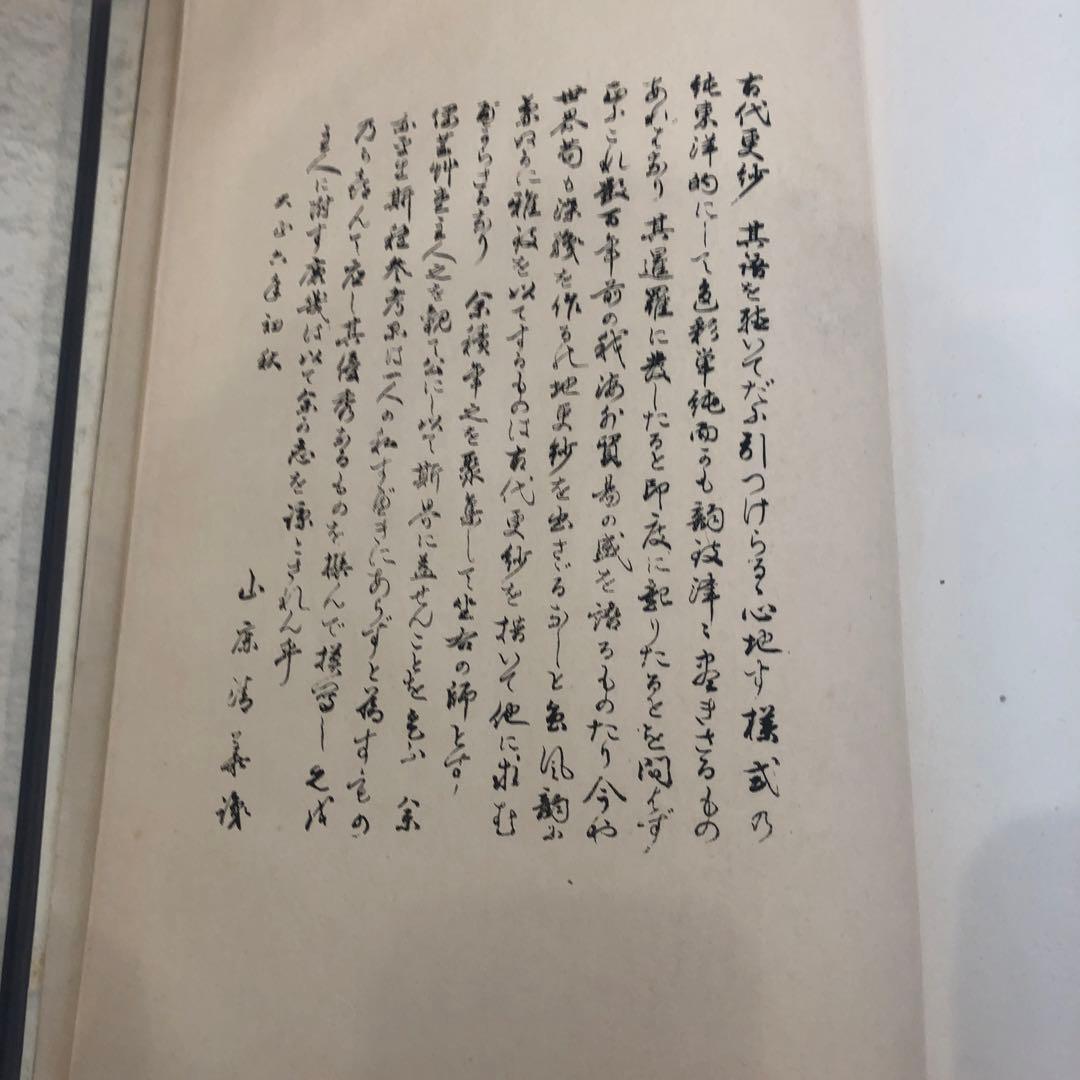 古代更紗 其語を聴いてだに引つけらるゝ心地す様式の
純東洋的にして色彩単純而かも韻致津々尽きざるもの
あればなり 其暹羅に発したると印度に起りたるとを問はず
これ数百年前の我海外貿易の盛を語るものたり今や
世界尚も深機を作るの地更紗を出さざるなしと雖風韻に
雅致を以てするものは古代更紗を措いて他に求む
べからざるなり 余積年之を聚集して坐右の師とす
芸艸堂主人之を観て公にし以て斯界に益せんことを乞ふ 余
斯種参考品は一人の私すべきにあらずと為すもの
乃ち喜んで応じ其優秀なるものを撰んで模写し之を
主人に附す庶幾は以て余の志を諒とされん乎
大正六年初秋
山鹿清華識